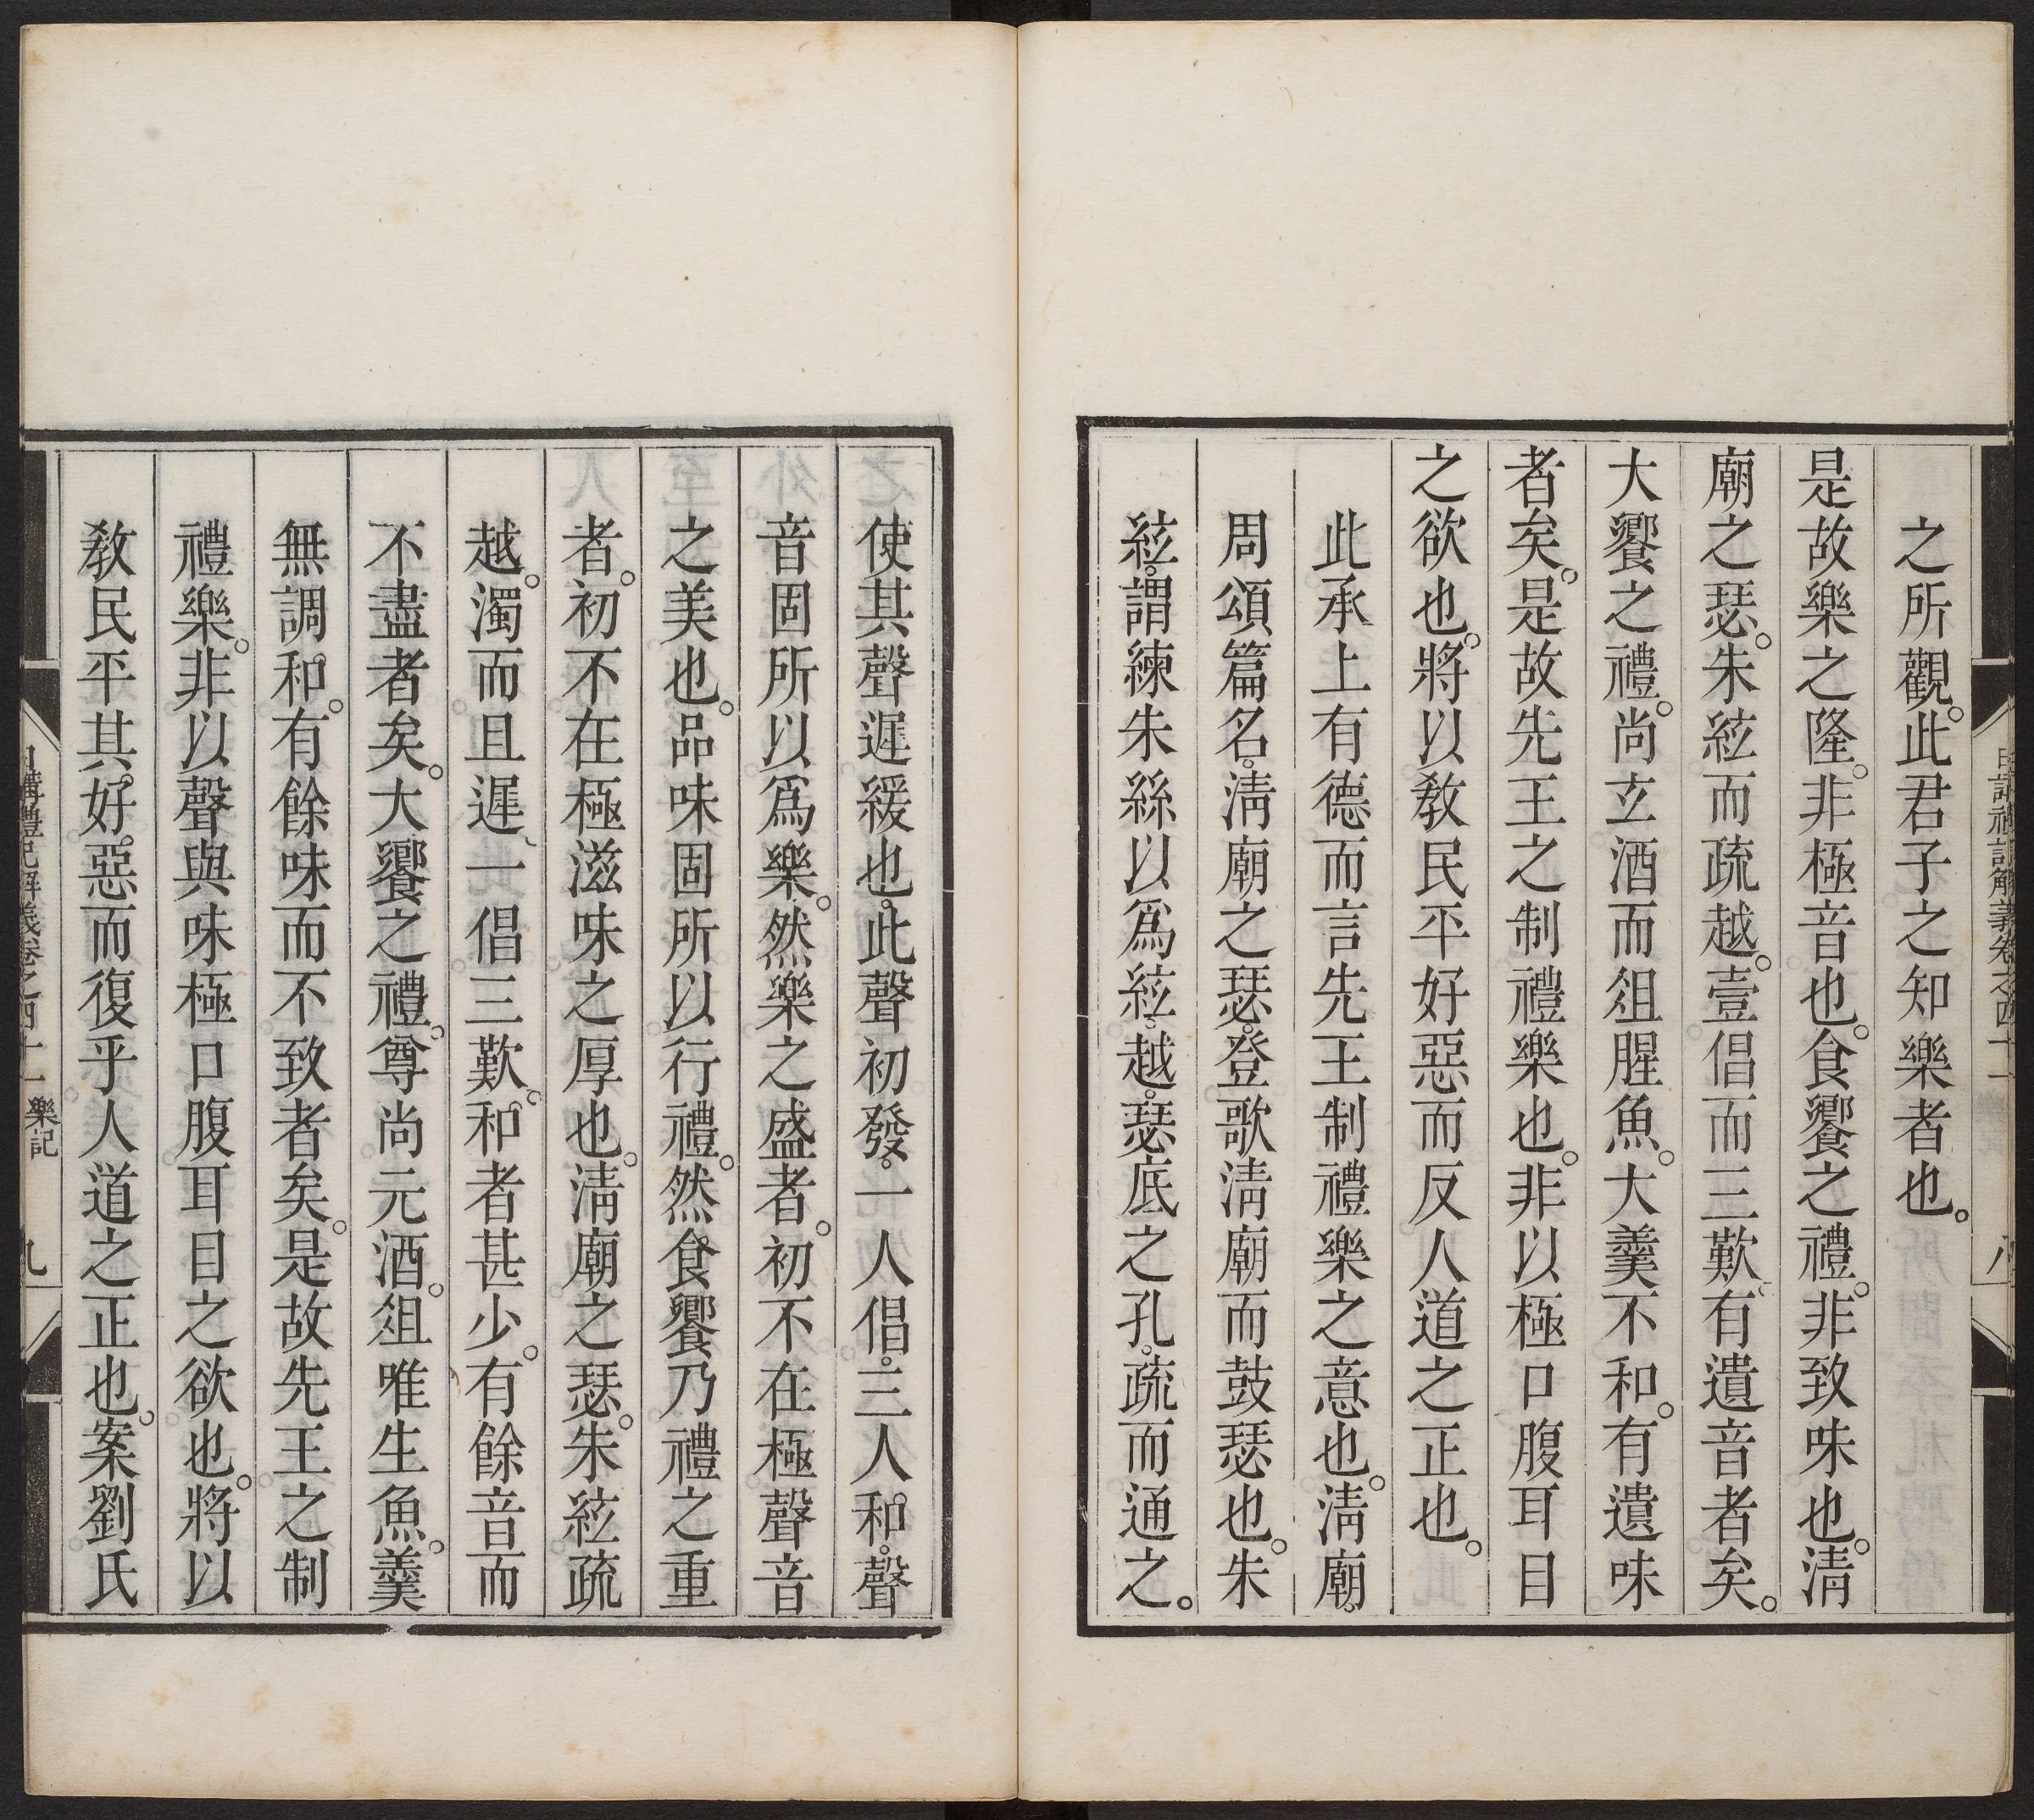 之所觀。此君子之知樂者也。
是故樂之隆。非極音也。食饗之禮。非致味也。淸
廟之瑟。朱絃而疏越。壹倡而三歎、有遺音者矣。
大饗之禮。尚玄酒而俎腥魚。大羹不和。有遺味
者矣。是故先王之制禮樂也。非以極口腹耳目
之欲也。將以敎民平好惡而反人道之正也。
此承上有德而言先王制禮樂之意也。淸廟。
周頌篇名。淸廟之瑟。登歌淸廟而鼓瑟也。朱
絃。謂練朱絲以爲絃。越。瑟底之孔。疏而通之。
日講禮記解義卷之四十一
八
使其聲遲緩也。此聲初發。一人倡。三人和。聲
音固所以爲樂。然樂之盛者。初不在極聲音
之美也。品味固所以行禮。然食饗乃禮之重
者。初不在極滋味之厚也。淸廟之瑟。朱絃疏
越。濁而且遲、一倡三歎。和者甚少。有餘音而
不盡者矣。大饗之禮。尊尚元酒。俎唯生魚。羹
無調和。有餘味而不致者矣。是故先王之制
禮樂。非以聲與味極口腹耳目之欲也。將以
敎民平其好惡而復乎人道之正也。案劉氏
日講禮記解義卷之四十一 樂記
九